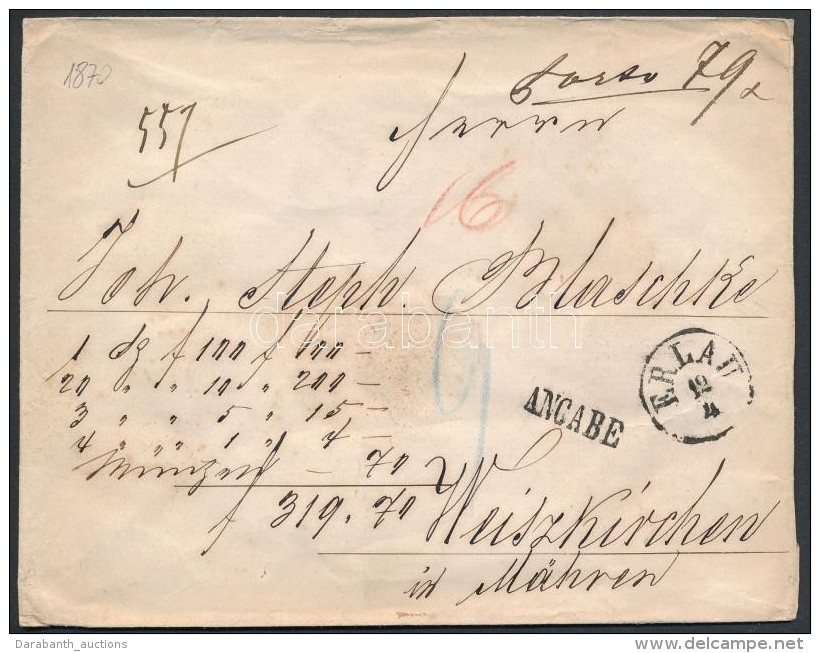 1870
Porto 79x
557
Herrn
16
Joh. Steph. Blaschke
darabanth
1 dg f 100 f 100 —
20 " " 10 " 200 —
3 " " 5 " 15 —
4 " " " 1 " 4 —
Münzen — 70
f 319.70
9
ANGABE
ERLAU
12
4
Weiszkirchen
in Mähren
Darabanth_auctions
www.delcampe.net